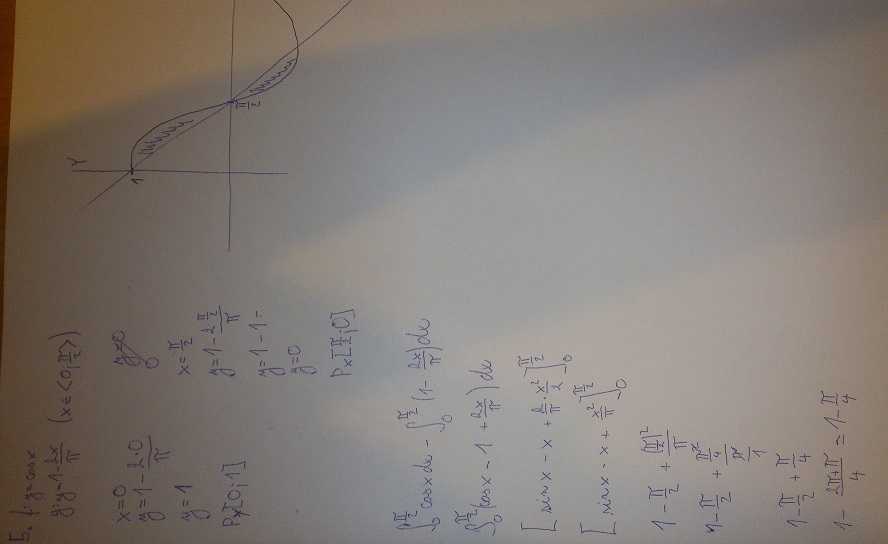 5. f: y = cos x
g: y = 1 - 2x/π (x ∈ <0; π/2>)
x = 0
y = 1 - 2·0/π
y = 1
Px[0; 1]
y = 0
0
x = π/2
y = 1 - 2 π/2 / π
y = 1 - 1 =
y = 0
Px[π/2; 0]
Y
1
π/2
∫₀^(π/2) cos x dx - ∫₀^(π/2) (1 - 2x/π) dx
∫₀^(π/2) (cos x - 1 + 2x/π) dx
[sin x - x + 2/π · x²/2]₀^(π/2)
[sin x - x + x²/π]₀^(π/2)
1 - π/2 + (π/2)²/π
1 - π/2 + π²/4 / π/1
1 - π/2 + π/4
1 - 2π+π/4 = 1 - π/4